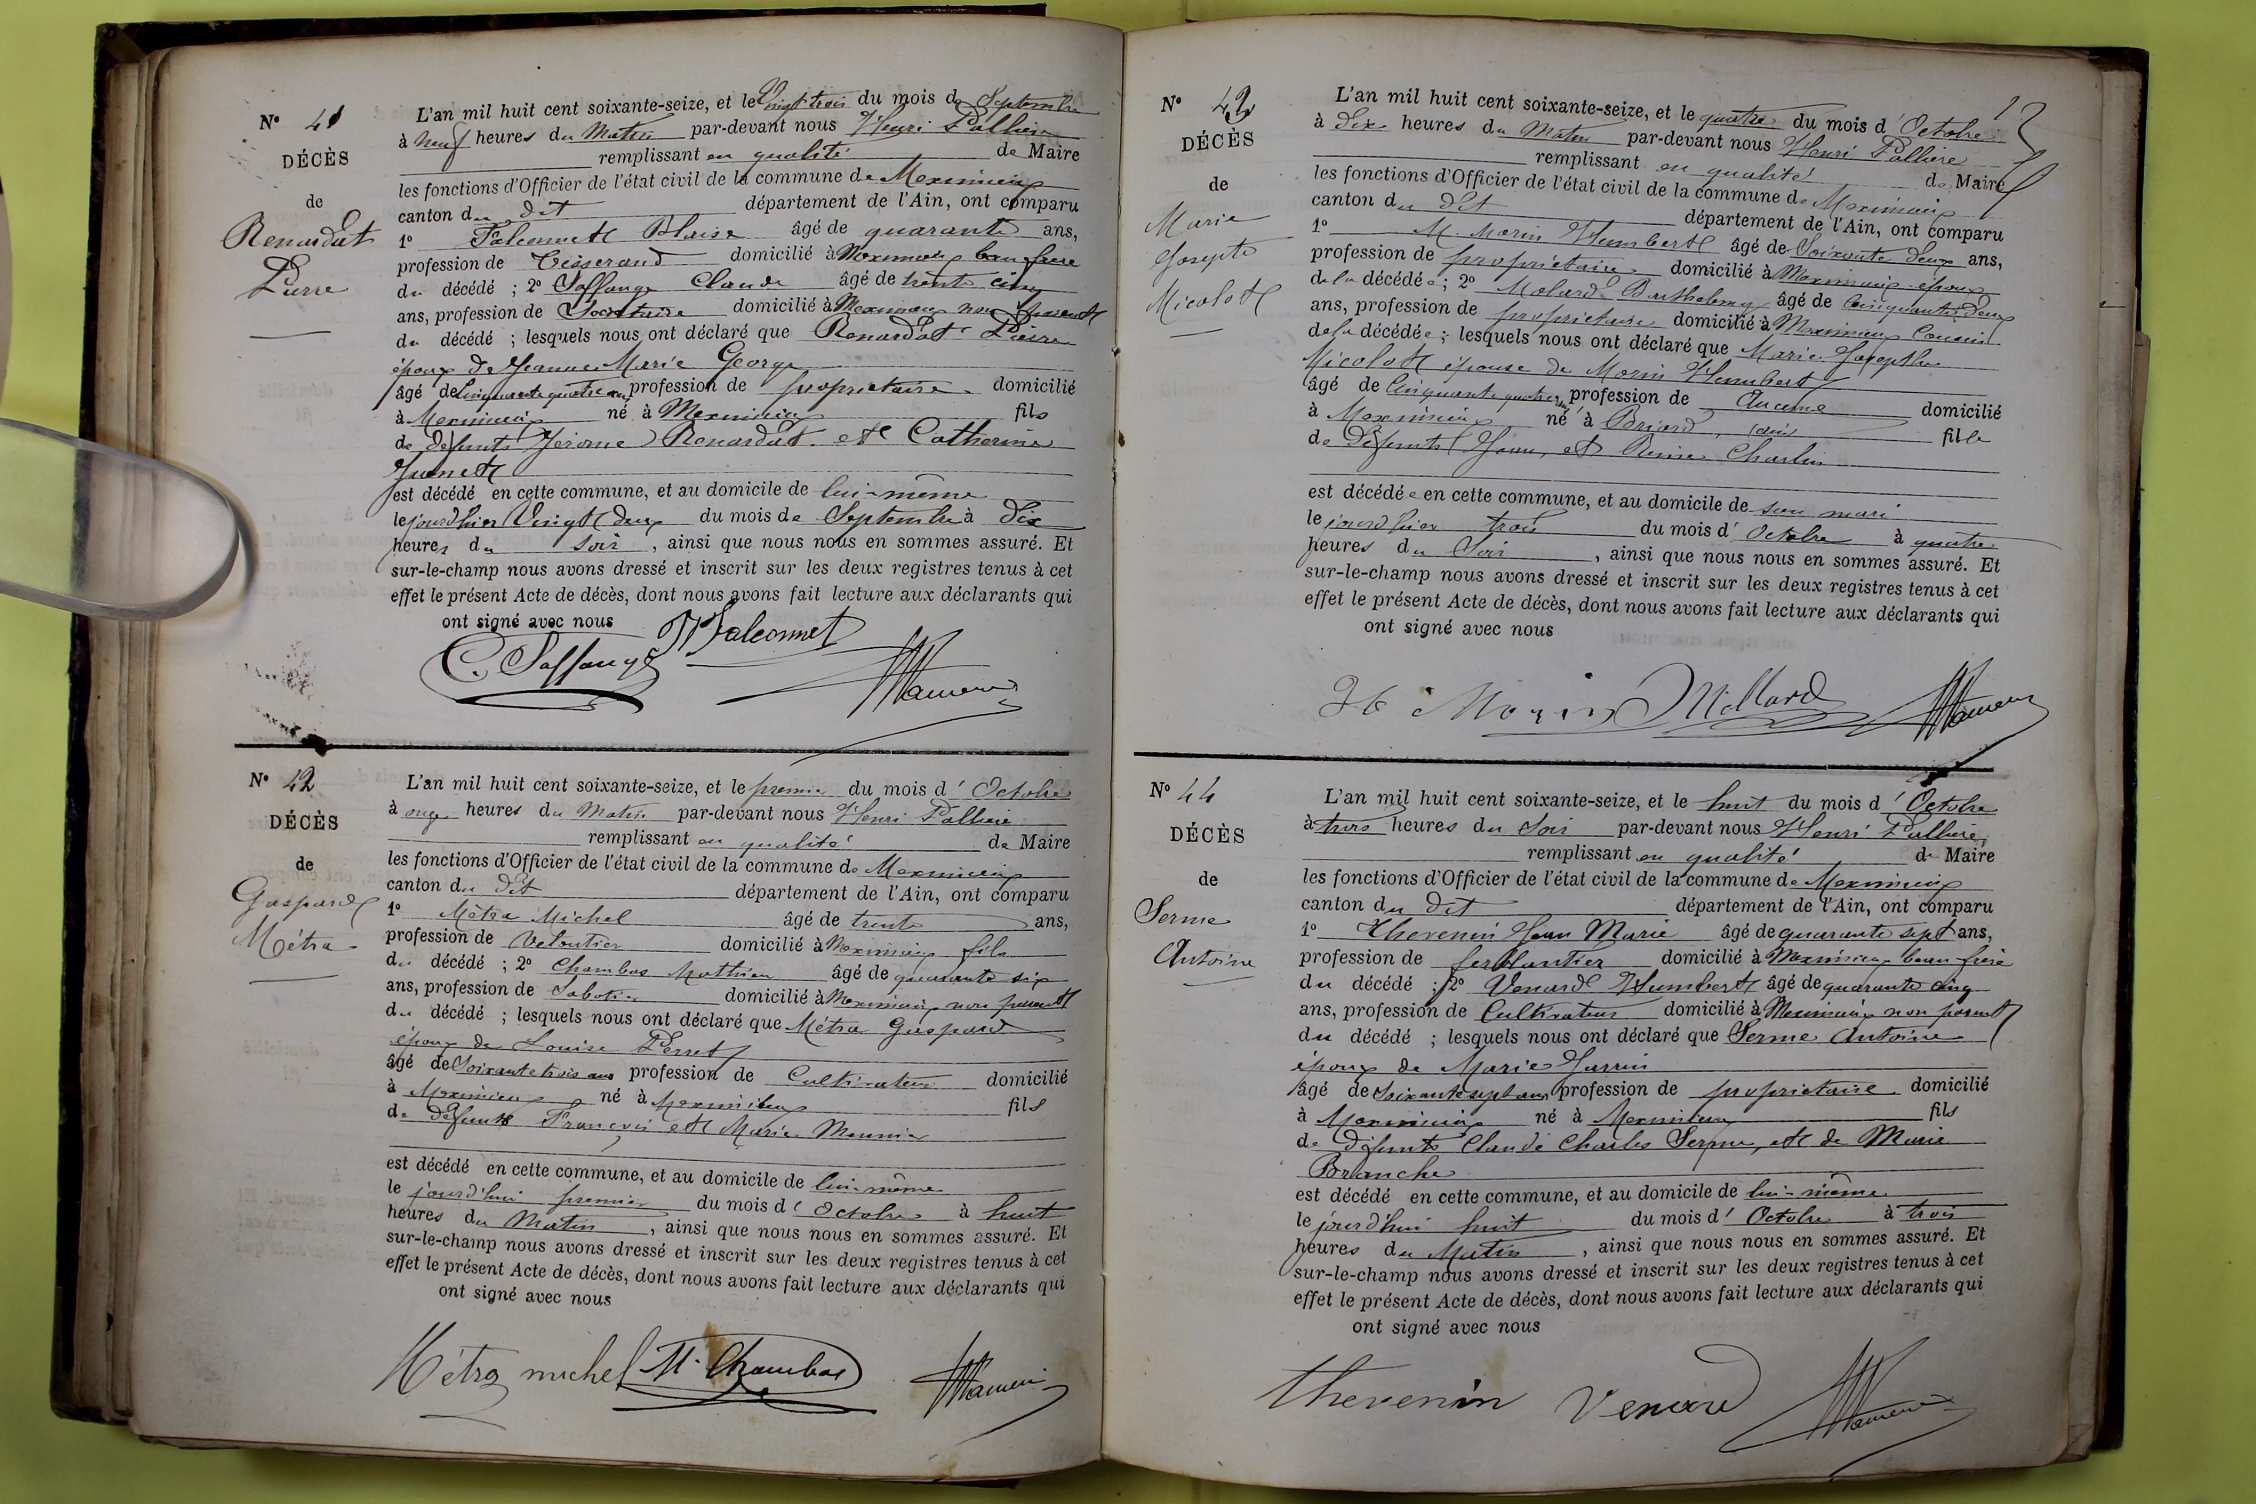 N° 41
DÉCÈS
de
Renardat
Pierre
L'an mil huit cent soixante-seize, et le Vingt trois du mois de Septembre
à neuf heures du Matin par-devant nous Henri Pallière
remplissant en qualité de Maire
les fonctions d'Officier de l'état civil de la commune de Meximieux
canton du dit département de l'Ain, ont comparu
1° Falconnet Blaise âgé de quarante ans,
profession de Tisserand domicilié à Meximieux beau frère
du décédé ; 2° Saffange Claude âgé de trente cinq
ans, profession de domicilié à Meximieux non parent
du décédé ; lesquels nous ont déclaré que Renardat Pierre
époux de Jeanne Marie George
âgé de Cinquante quatre ans profession de propriétaire domicilié
à Meximieux né à Meximieux fils
de défunts Jérome Renardat et Catherine
est décédé en cette commune, et au domicile de lui-même
le jourd'hier Vingt deux du mois de Septembre à dix
heures du soir, ainsi que nous nous en sommes assuré. Et
sur-le-champ nous avons dressé et inscrit sur les deux registres tenus à cet
effet le présent Acte de décès, dont nous avons fait lecture aux déclarants qui
ont signé avec nous
Falconnet
C. Saffange
N° 42
DÉCÈS
de
Gaspard
Métra
L'an mil huit cent soixante-seize, et le premier du mois d' Octobre
à onze heures du Matin par-devant nous Henri Pallière
remplissant en qualité de Maire
les fonctions d'Officier de l'état civil de la commune de Meximieux
canton du dit département de l'Ain, ont comparu
1° Métra Michel âgé de trente ans,
profession de Veloutier domicilié à Meximieux fils
du décédé ; 2° Chambas Mathieu âgé de quarante six
ans, profession de Sabotier domicilié à Meximieux non parent
du décédé ; lesquels nous ont déclaré que Métra Gaspard
époux de Louise Perret
âgé de Soixante trois ans profession de Cultivateur domicilié
à Meximieux né à Meximieux fils
de défunts François et Marie Meunier
est décédé en cette commune, et au domicile de lui-même
le jourd'hui premier du mois d' Octobre à huit
heures du Matin, ainsi que nous nous en sommes assuré. Et
sur-le-champ nous avons dressé et inscrit sur les deux registres tenus à cet
effet le présent Acte de décès, dont nous avons fait lecture aux déclarants qui
ont signé avec nous
Métra michel M. Chambas
N° 43
DÉCÈS
de
Marie
Josepte
Micolott
L'an mil huit cent soixante-seize, et le quatre du mois d' Octobre
à dix heures du Matin par-devant nous Henri Pallière
remplissant en qualité de Maire
les fonctions d'Officier de l'état civil de la commune de Meximieux
canton du dit département de l'Ain, ont comparu
1° M. Morin Humbert âgé de Soixante deux ans,
profession de propriétaire domicilié à Meximieux époux
de la décédée ; 2° Molard Barthelemy âgé de Cinquante deux
ans, profession de propriétaire domicilié à Meximieux Cousin
de la décédée ; lesquels nous ont déclaré que Marie Josepthe
Micolott épouse de Morin Humbert
âgé de Cinquante quatre ans profession de Aucune domicilié
à Meximieux né à fille
de Défunts Jean, et Reine Charlin
est décédée en cette commune, et au domicile de son mari
le jourd'hier trois du mois d' Octobre à quatre
heures du Soir, ainsi que nous nous en sommes assuré. Et
sur-le-champ nous avons dressé et inscrit sur les deux registres tenus à cet
effet le présent Acte de décès, dont nous avons fait lecture aux déclarants qui
ont signé avec nous
Morin Mollard
N° 44
DÉCÈS
de
Serme
Antoine
L'an mil huit cent soixante-seize, et le huit du mois d' Octobre
à trois heures du Soir par-devant nous Henri Pallière
remplissant en qualité de Maire
les fonctions d'Officier de l'état civil de la commune de Meximieux
canton du dit département de l'Ain, ont comparu
1° Thevenin Jean Marie âgé de quarante sept ans,
profession de ferblantier domicilié à Meximieux beau frère
du décédé ; 2° Venard Humbert âgé de quarante cinq
ans, profession de Cultivateur domicilié à Meximieux non parent
du décédé ; lesquels nous ont déclaré que Serme Antoine
époux de Marie
âgé de Soixante sept ans profession de propriétaire domicilié
à Meximieux né à Meximieux fils
de Défunts Claude Charles Serme, et de Marie
Branche
est décédé en cette commune, et au domicile de lui-même
le jourd'hui huit du mois d' Octobre à trois
heures du Matin, ainsi que nous nous en sommes assuré. Et
sur-le-champ nous avons dressé et inscrit sur les deux registres tenus à cet
effet le présent Acte de décès, dont nous avons fait lecture aux déclarants qui
ont signé avec nous
thevenin Venard